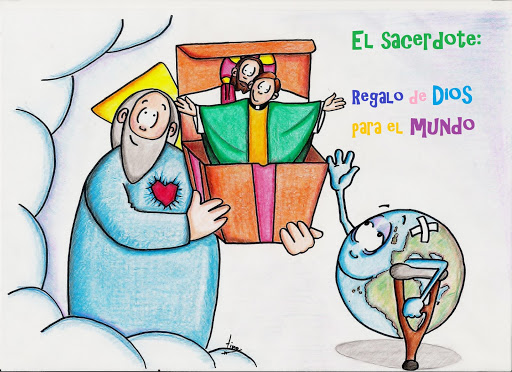 El Sacerdote:
Regalo de DIOS
para el MUNDO